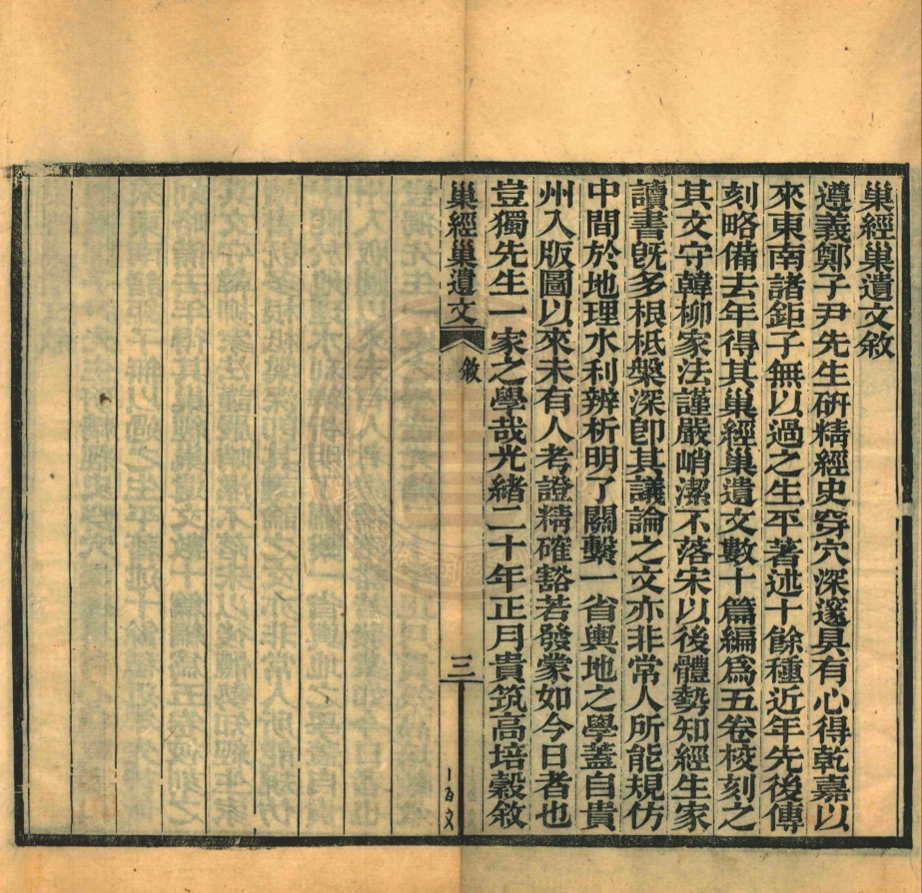 巢經巢遺文敘
遵義鄭子尹先生硏精經史穿穴深邃具有心得乾嘉以
來東南諸鉅子無以過之生平著述十餘種近年先後傳
刻略備去年得其巢經巢遺文數十篇編爲五卷校刻之
其文守韓柳家法謹嚴峭潔不落宋以後體勢知經生家
讀書旣多根柢槃深卽其議論之文亦非常人所能規仿
中閒於地理水利辨析明了關繫一省輿地之學蓋自貴
州入版圖以來未有人考證精確豁若發蒙如今日者也
豈獨先生一家之學哉光緒二十年正月貴筑高培穀敘
巢經巢遺文 敘 三